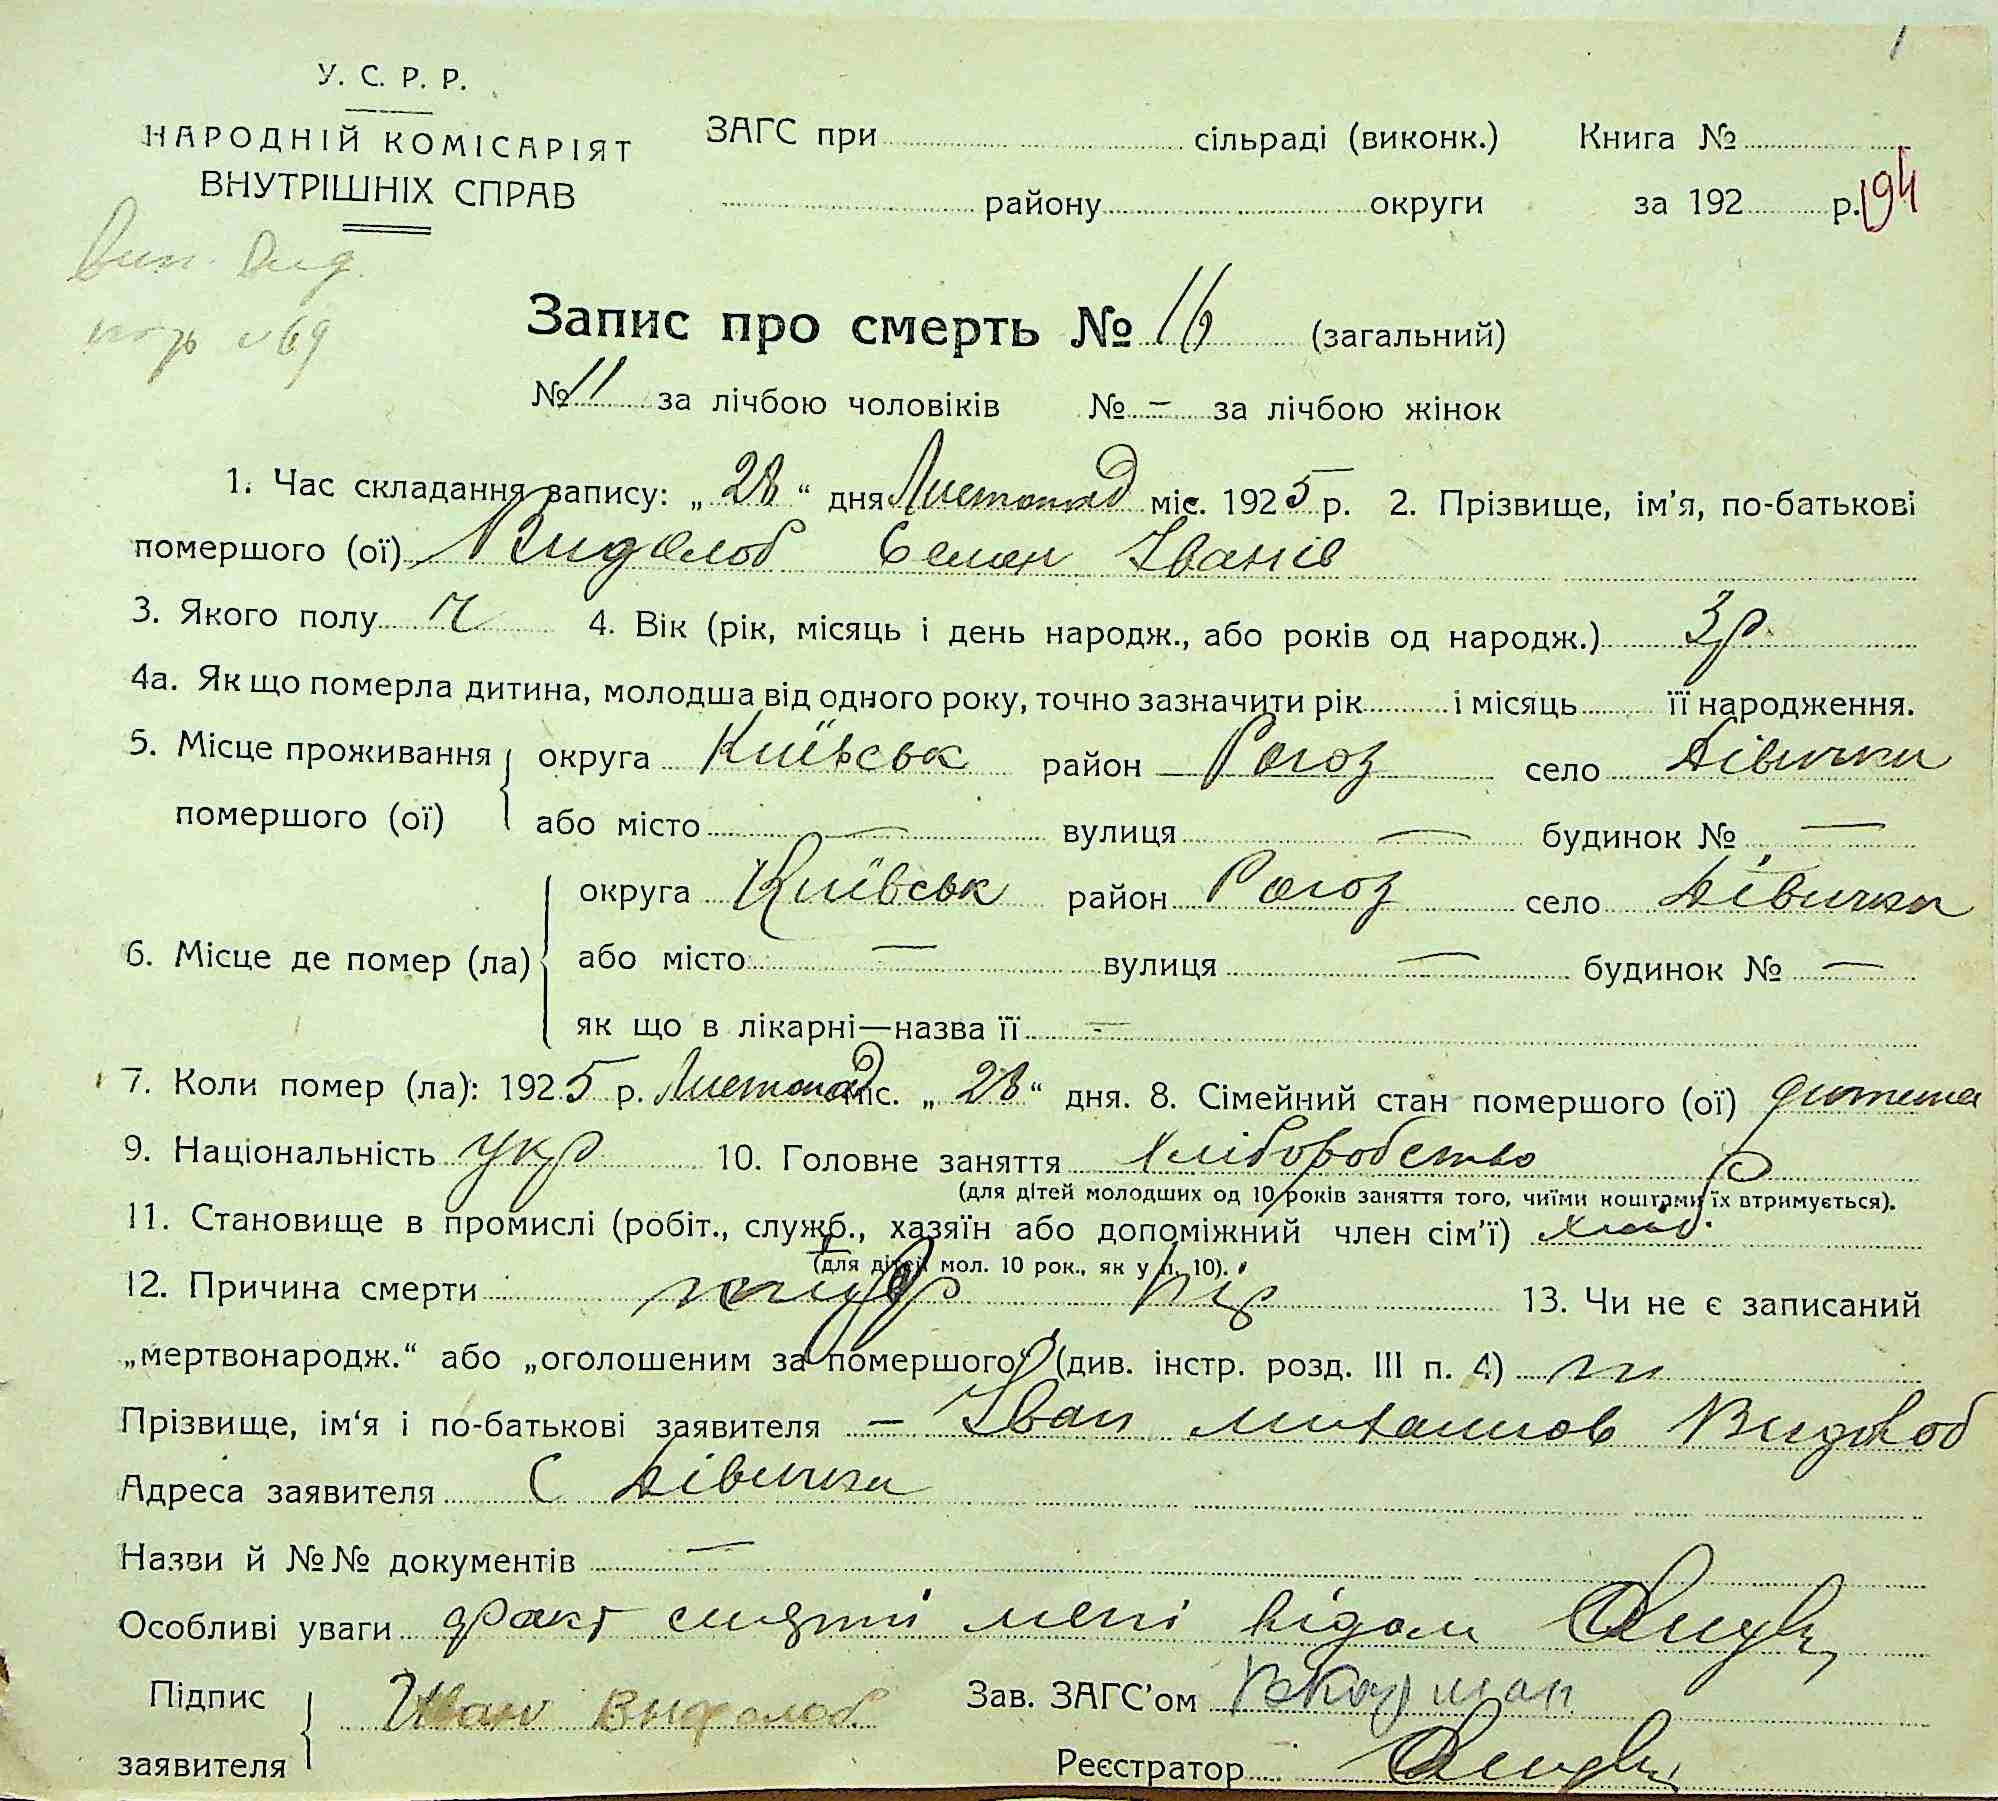 У. С. Р. Р.
НАРОДНІЙ КОМІСАРІЯТ
ВНУТРІШНІХ СПРАВ
ЗАГС при сільраді (виконк.) Книга №
району округи за 192 р. 194
Запис про смерть № 16 (загальний)
№ 11 за лічбою чоловіків № – за лічбою жінок
1. Час складання запису: „ 28 “ дня Листопад міс. 1925 р. 2. Прізвище, ім'я, по-батькові
помершого (ої) Видолоб Семен Іванів
3. Якого полу ч 4. Вік (рік, місяць і день народж., або років од народж.) 3 р.
4а. Як що померла дитина, молодша від одного року, точно зазначити рік і місяць її народження.
5. Місце проживання округа Київськ район Рогоз село Дівички
помершого (ої) або місто — вулиця — будинок № —
округа Київськ район Рогоз село Дівички
6. Місце де помер (ла) або місто — вулиця — будинок № —
як що в лікарні—назва її –
7. Коли помер (ла): 1925 р. Листопад міс. „ 28 “ дня. 8. Сімейний стан помершого (ої) дитина
9. Національність укр 10. Головне заняття хліборобство
(для дітей молодших од 10 років заняття того, чиїми коштами їх втримується).
11. Становище в промислі (робіт., служб., хазяїн або допоміжний член сім'ї)
(для дітей мол. 10 рок., як у п. 10).
12. Причина смерти кір 13. Чи не є записаний
„мертвонародж.“ або „оголошеним за помершого“ (див. інстр. розд. III п. 4) ні
Прізвище, ім'я і по-батькові заявителя – Іван Михайлов Видолоб
Адреса заявителя С Дівички
Назви й №№ документів —
Особливі уваги факт смерті мені відом
Підпис Иван Видолоб Зав. ЗАГС'ом
заявителя Реєстратор